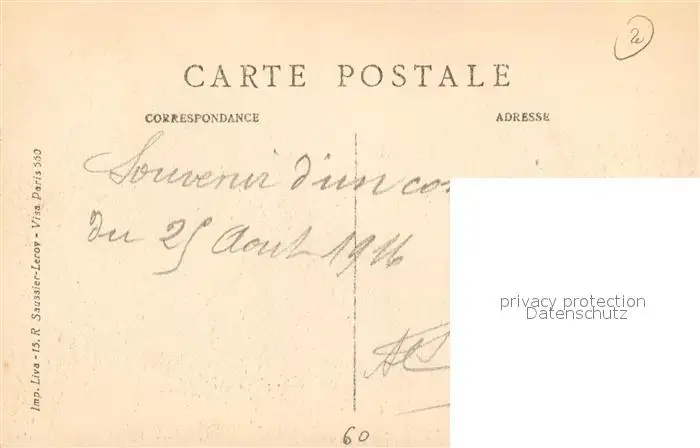 2
CARTE POSTALE
CORRESPONDANCE
ADRESSE
Souvenir d'un
du 25 Aout 1916
privacy protection
Datenschutz
60
Imp. Liva - 15, R Saussier-Leroy - Visa Paris 560